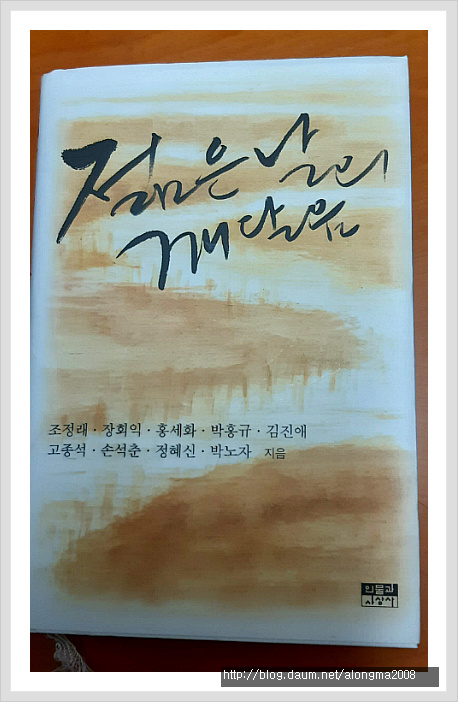 젊은 날의
깨달음
조정래 · 장회익 · 홍세화 · 박홍규 · 김진애
고종석 · 손석춘 · 정혜신 · 박노자 지음
인물과
사상사
http://blog.daum.net/alongma2008